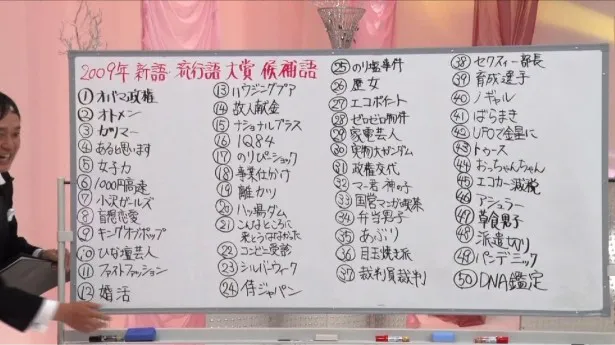 2009年 新語 流行語 大賞 候補語
① オバマ政権
② オトメン
③ カツマー
④ あると思います
⑤ 女子力
⑥ 1000円高速
⑦ 小沢ガールズ
⑧ 盲想恋愛
⑨ キングオブポップ
⑩ ひな壇芸人
⑪ ファストファッション
⑫ 婚活
⑬ ハウジングプア
⑭ 故人献金
⑮ ナショナルプラス
⑯ 1Q84
⑰ のりぴーショック
⑱ 事業仕分け
⑲ 離カツ
⑳ ハッ場ダム
㉑ こんなところに
来とうはなかった
㉒ コンビニ受診
㉓ シルバーウィーク
㉔ 侍ジャパン
㉕ のり塩事件
㉖ 歴女
㉗ エコポイント
㉘ ゼロゼロ物件
㉙ 家電芸人
㉚ 実物大ガンダム
㉛ 政権交代
㉜ マー君 神の子
㉝ 国営マンガ喫茶
㉞ 弁当男子
㉟ あぶり
㊱ 目玉焼き派
㊲ 裁判員裁判
㊳ セクスィー部長
㊴ 育成選手
㊵ ノギャル
㊶ ばらまき
㊷ UFOで金星に
㊸ トゥース
㊹ おっちゃんちゃん
㊺ エコカー減税
㊻ アシュラー
㊼ 草食男子
㊽ 派遣切り
㊾ パンデミック
㊿ DNA鑑定